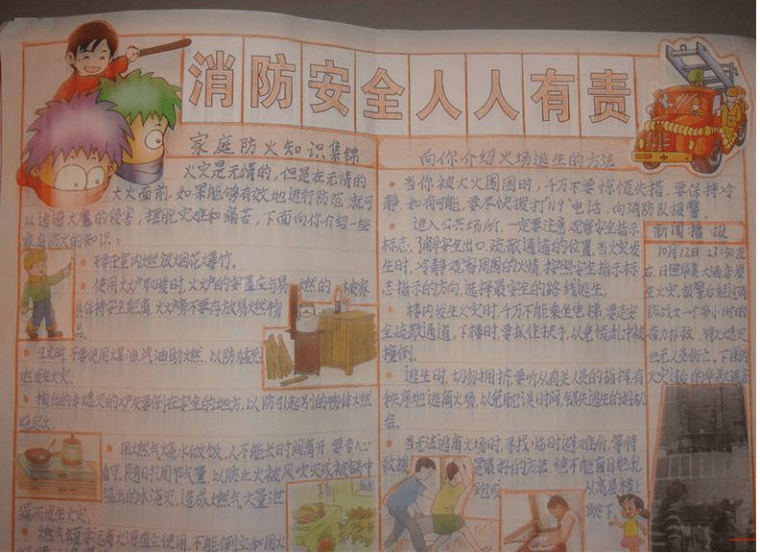 消防安全人人有责
家庭防火知识集锦
火灾是无情的,但是在无情的
大火面前,如果能够有效地进行防范,就可
以逃过火魔的侵害,摆脱灾难和痛苦,下面向你介绍一些
家庭防火的知识:
禁在室内燃放烟花爆竹。
使用火炉取暖时,火炉的安置应与易燃的
具保持安全距离,火炉旁不要存放易燃物
品。
生火时,不要使用煤油、汽油助燃,以防
发生火灾。
的未熄灭的炉灰要倒在安全的地方,以防引起别的物体燃
用燃气烧水做饭,人不能长时间离开,要专心
看守,随时调节气量,以防止火被风吹灭或被锅中
溢出的水浇灭,造成燃气大量泄
漏而发生火灾。
燃气 要远离火源直立使用,不能倒立和用火
向你介绍火场逃生的方法
当你被大火围困时,千万不要惊慌失措,要保持冷
静,如有可能,要尽快拨打“119”电话,向消防队报警。
进入公共场所,一定要注意观察安全指示
标志,了解安全出口、疏散通道的位置,当火灾发
生时,冷静观察周围的火情,按照安全指示标
志指示的方向,选择最安全的路线逃生。
楼内发生火灾时,千万不能乘坐电梯,要走安
全疏散通道。下楼时,要抓住扶手,以免慌乱中被
撞倒。
逃生时,切勿拥挤,要听从有关人员的指挥有
秩序地逃离火场,以免耽误时间,错失逃生的好机
会。
当无法逃离火场时,寻找临时避难所,等待
救援 是最好的方法,绝不能盲目胆乱
跑或 从高楼上
跳下。
新闻播报
10月12日 23:30左
右,日照 大酒店发
生火灾,报警后经过消
防战士一个多小时的
奋力扑救,将火熄灭
也无人员伤亡,
火灾